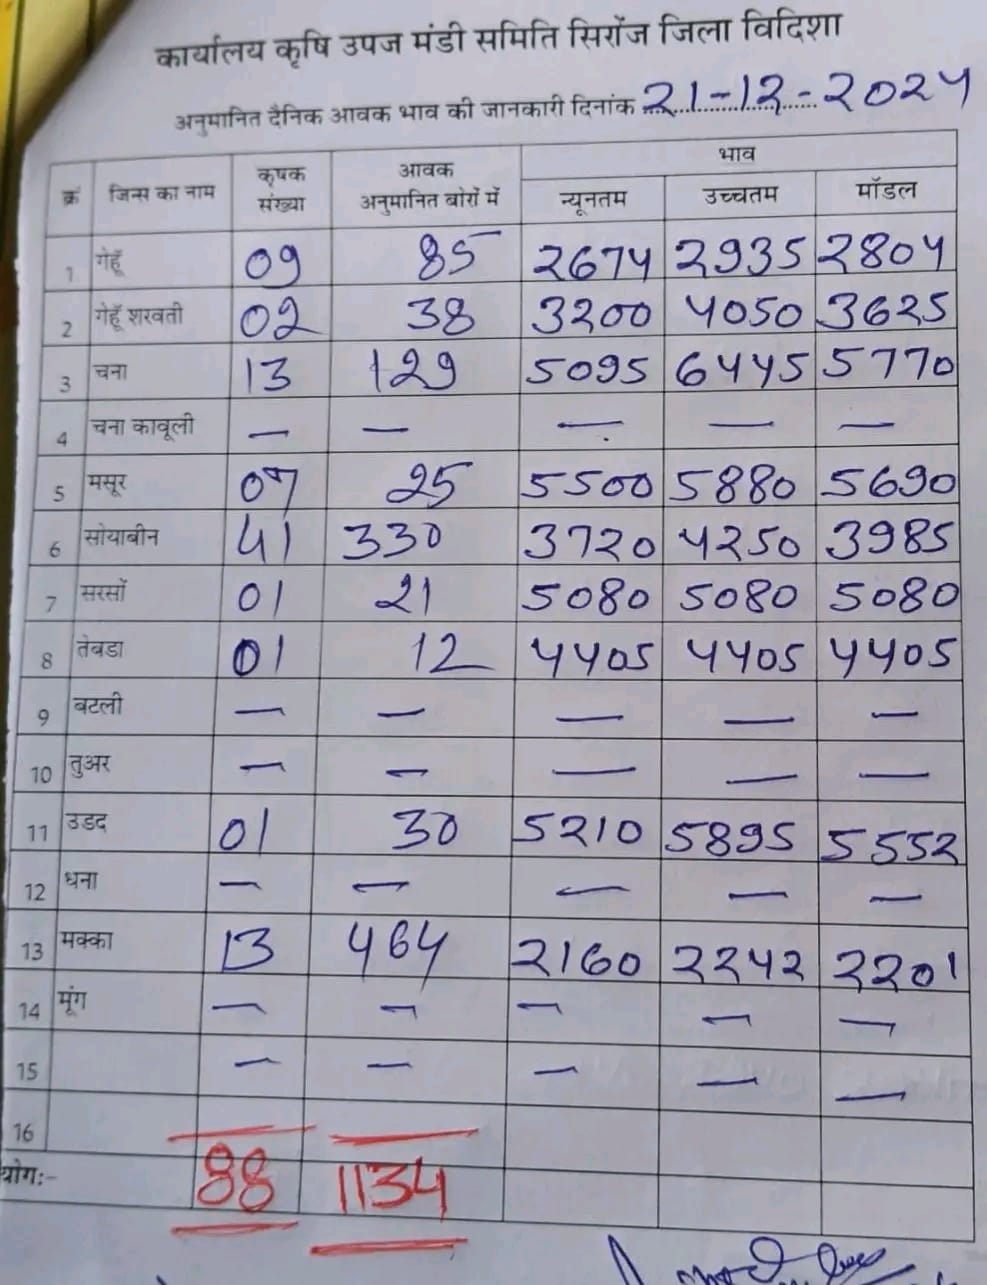 कार्यालय कृषि उपज मंडी समिति सिरोंज जिला विदिशा
अनुमानित दैनिक आवक भाव की जानकारी दिनांक 21-12-2024
क्रं जिन्स का नाम कृषक संख्या आवक अनुमानित बोरों में भाव
न्यूनतम उच्चतम मॉडल
1 गेहूँ 09 85 2674 2935 2804
2 गेहूँ शरवती 02 38 3200 4050 3625
3 चना 13 129 5095 6445 5770
4 चना कावूली — — — — —
5 मसूर 07 25 5500 5880 5690
6 सोयाबीन 41 330 3720 4250 3985
7 सरसों 01 21 5080 5080 5080
8 तेबडा 01 12 4405 4405 4405
9 बटली — — — — —
10 तुअर — — — — —
11 उडद 01 30 5210 5895 5552
12 धना — — — — —
13 मक्का 13 464 2160 2242 2201
14 मूंग — — — — —
15 — — — — —
16
योगः- 88 1134